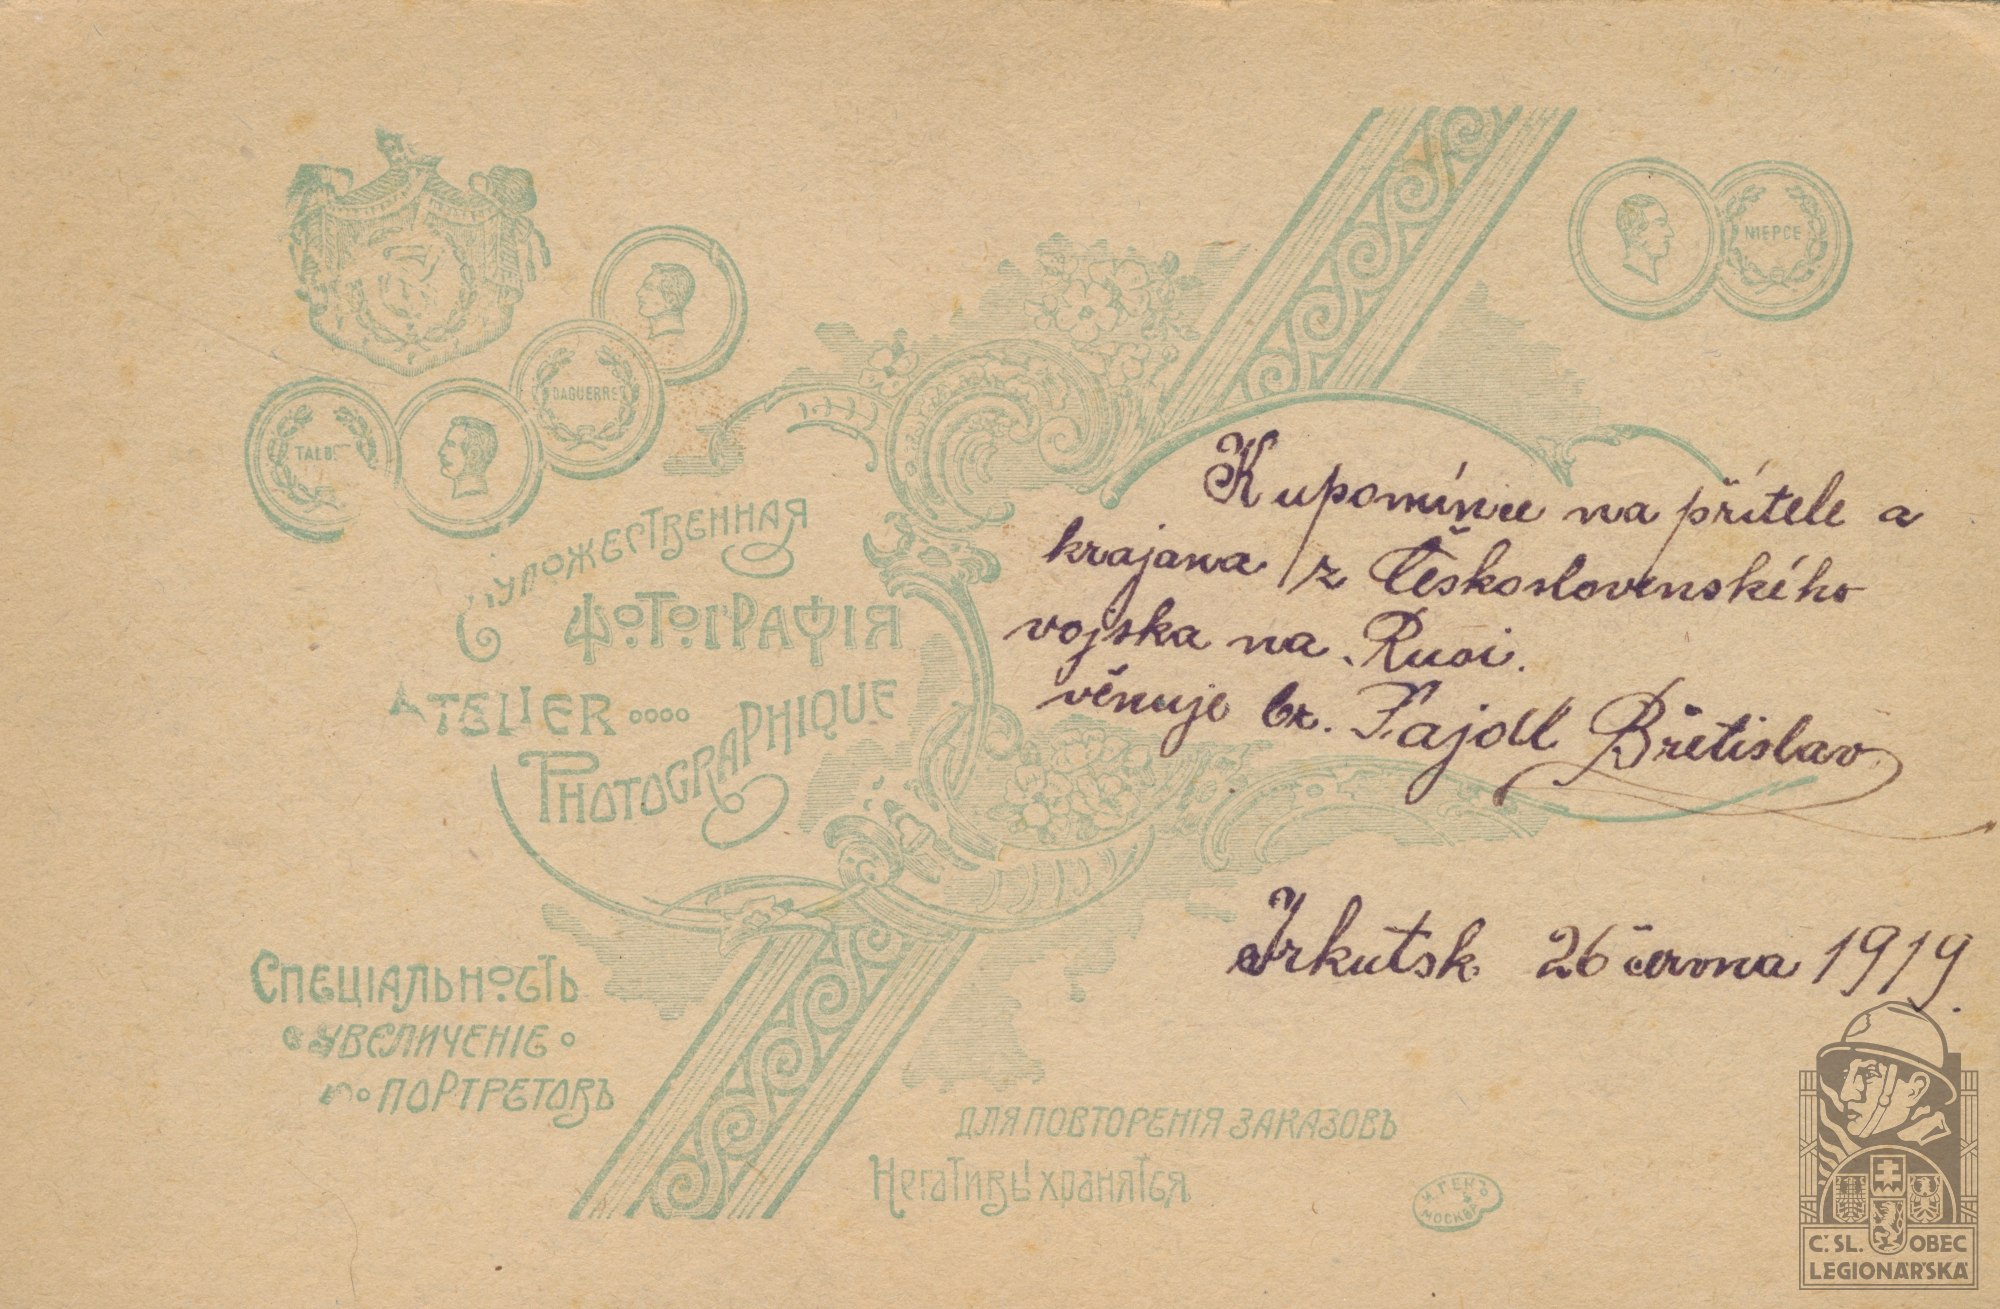 NIEPCE
DAGUERRE
TALB
Художественная
Фотографія
Atelier
Photographique
K upomínce na přítele a
krajana z Československého
vojska na Rusi.
věnuje br. Fajdl Břetislav
Irkutsk 26 června 1919.
Спеціальность
увеличеніе
портретовъ
для повторенія заказовъ
Негативы хранятся
И. ГЕНЪ
МОСКВА
Č. SL. OBEC
LEGIONÁŘSKÁ